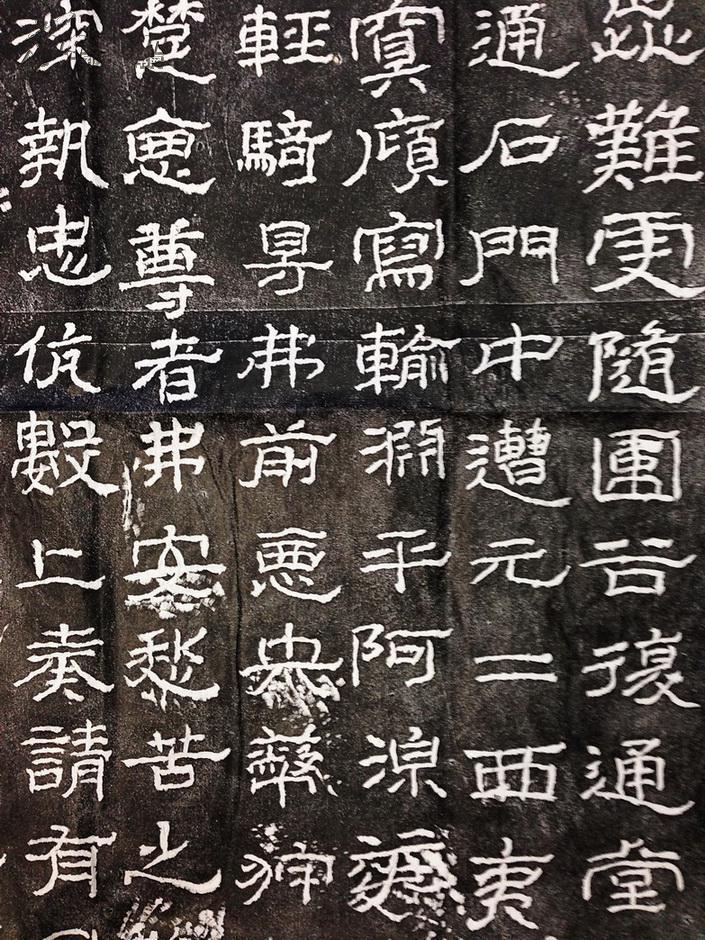 澀難更隨圍谷復通堂
通石門中遭元二西夷
冥廎寫輸淵平阿湶泥
輕騎㝵弗前惡虫蔽狩
楚惡尊者弗安愁苦之
深執忠伉數上奏請有